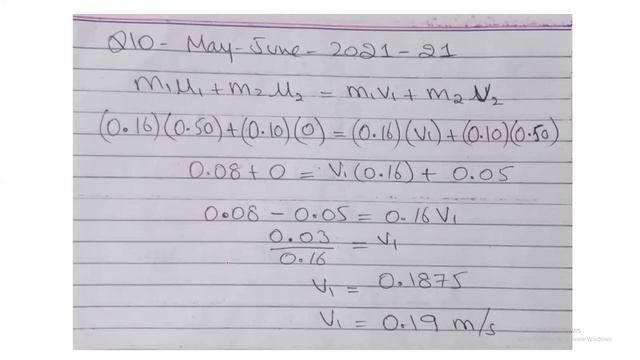 Q10 - May-June - 2021 - 21
m₁u₁ + m₂u₂ = m₁v₁ + m₂v₂
(0.16)(0.50)+(0.10)(0) = (0.16)(V₁)+(0.10)(0.50)
0.08 + 0 = V₁(0.16) + 0.05
0.08 - 0.05 = 0.16V₁
0.03/0.16 = V₁
V₁ = 0.1875
V₁ = 0.19 m/s